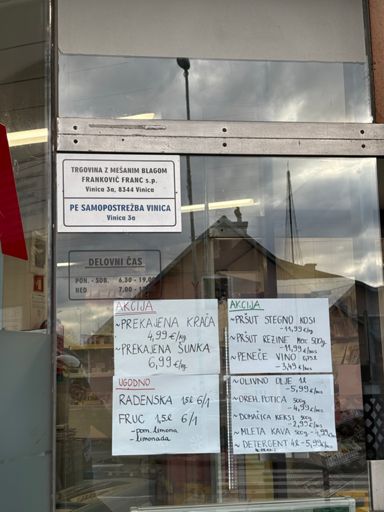 TRGOVINA Z MEŠANIM BLAGOM
FRANKOVIČ FRANC s.p.
Vinica 3a, 8344 Vinica
PE SAMOPOSTREŽBA VINICA
Vinica 3a
DELOVNI ČAS
PON. - SOB. 6.30 - 19.00
NED 7.00 - 
AKCIJA
~PREKAJENA KRAČA
4,99 €/kg
~PREKAJENA ŠUNKA
6,99 €/kg
UGODNO
RADENSKA 1,5l 6/1
FRUC 1,5l 6/1
- pom./limona
- limonada
AKCIJA
~PRŠUT STEGNO KOSI
-11,99 €/kg
~PRŠUT REZINE 500g
-11,99 €/kos
~PENEČE VINO 0,75l
-3,49 €/kos
~OLIVNO OLJE 1l
-5,99 €/kos
~OREH. POTICA 500g
-4,99 €/kos
~DOMAČI KEKSI 500g
-2,99 €/kos
~MLETA KAVA 500g -4,99 €/kos
~DETERGENT 4l -5,99 €/kos